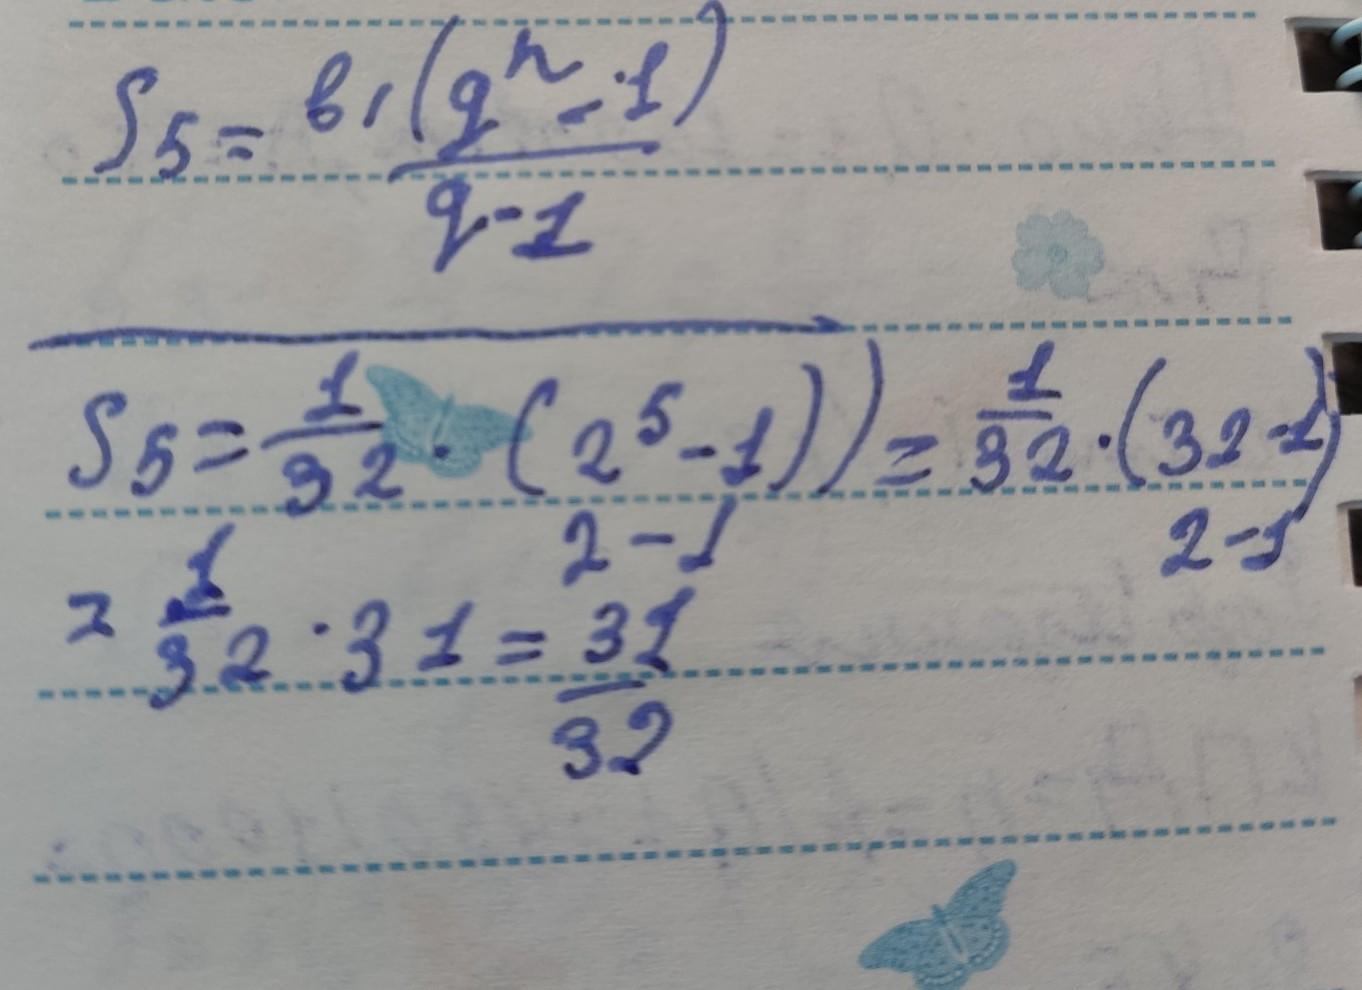 S5 = b1(q^n - 1)
q - 1
S5 = 1/32 · (2^5 - 1)) = 1/32 · (32 - 1)
2 - 1 2 - 1
= 1/32 · 31 = 31/32